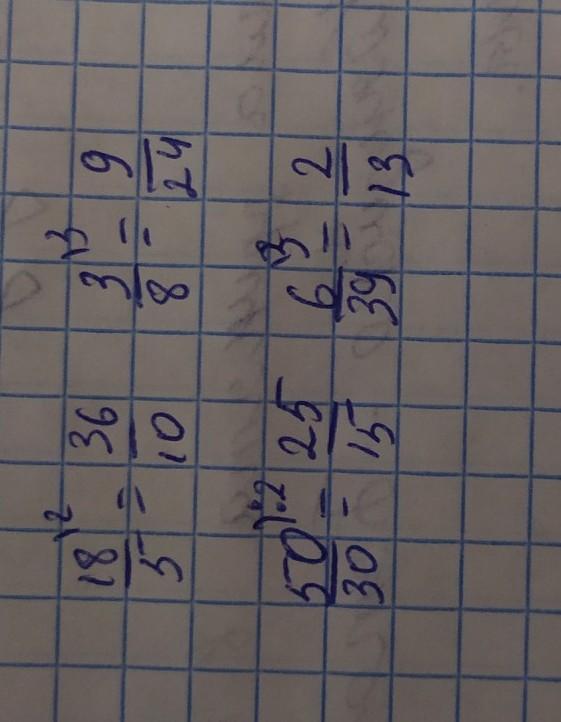 18/5 \2 = 36/10 3/8 \3 = 9/24
50/30 \:2 = 25/15 6/39 \3 = 2/13